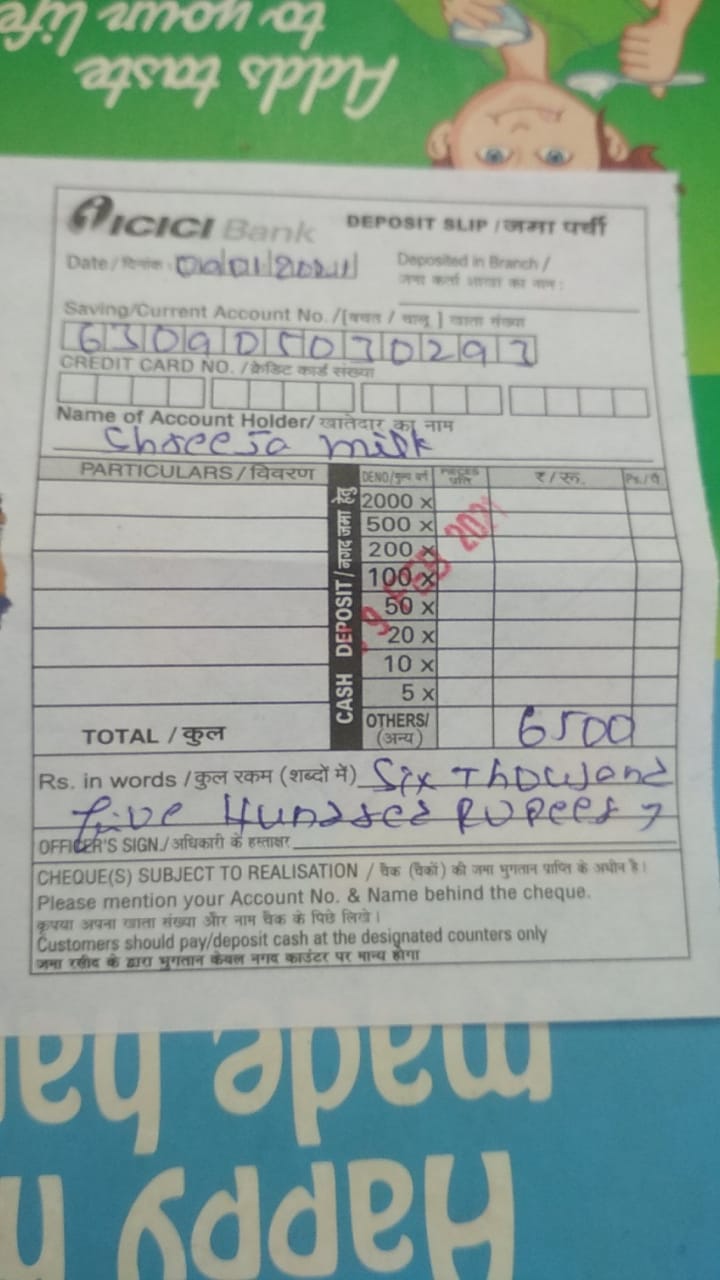 Adds taste
to your life
ICICI Bank
DEPOSIT SLIP / जमा पर्ची
Date / दिनांक :
Deposited in Branch /
जमा कर्ता शाखा का नाम :
Saving/Current Account No. / [बचत / चालू ] खाता संख्या
630905030293
CREDIT CARD NO. / क्रेडिट कार्ड संख्या
Name of Account Holder/ खातेदार का नाम
milk
PARTICULARS / विवरण
CASH DEPOSIT / नगद जमा हेतु
DENO/मुल्य वर्ग
PIECES
प्रति
₹ / रू.
Ps. / पै.
2000 x
500 x
200 x
100 x
50 x
20 x
10 x
5 x
FEB 2021
TOTAL / कुल
OTHERS/
(अन्य)
6500
Rs. in words / कुल रकम (शब्दों में) Six Thousand
five Hundred Rupees
OFFICER'S SIGN./ अधिकारी के हस्ताक्षर
CHEQUE(S) SUBJECT TO REALISATION / चैक (चैकों) की जमा भुगतान प्राप्ति के अधीन है।
Please mention your Account No. & Name behind the cheque.
कृपया अपना खाता संख्या और नाम चैक के पिछे लिखे।
Customers should pay/deposit cash at the designated counters only
जमा रसीद के द्वारा भुगतान केवल नगद काउंटर पर मान्य होगा
made
Happy